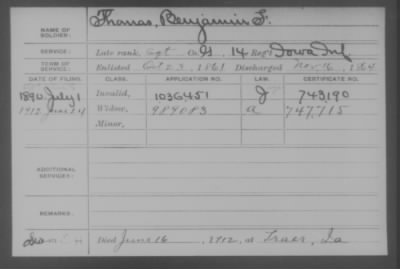 NAME OF SOLDIER: Thomas, Benjamin F.
SERVICE: Late rank, Sgt Co. G, 14 Reg't Iowa Inf.
TERM OF SERVICE: Enlisted Oct 23, 1861 Discharged Nov. 16, 1864
DATE OF FILING. CLASS. APPLICATION NO. LAW. CERTIFICATE NO.
1890 July 1 Invalid, 1036451 J 743190
1912 June 24 Widow, 989083 a 747,715
Minor,
ADDITIONAL SERVICES:
REMARKS.
Died June 16, 1912, at Traer, Ia